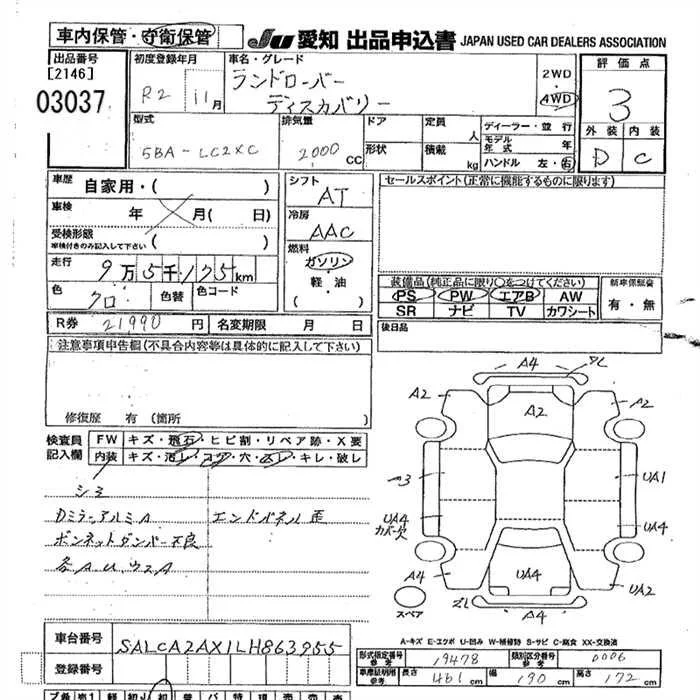 車内保管・守衛保管
JU 愛知 出品申込書 JAPAN USED CAR DEALERS ASSOCIATION
出品番号
[2146]
03037
初度登録年月
R2 11月
車名・グレード
ランドローバー
ディスカバリー
2WD
・
4WD
評価点
3
外装 内装
D C
型式
5BA-LC2XC
排気量
2000 CC
ドア
形状
定員 人
積載 kg
ディーラー・並行
モデル年式 年
ハンドル 左・右
車歴
自家用・( )
車検
年 月( 日)
受検形態
車検付きのみ記入して下さい ( )
走行
9万5千175km
色
クロ
色替
色コード
シフト
AT
冷房
AAC
燃料
ガソリン
軽・油
( )
セールスポイント(正常に機能するものに限ります)
装備品(純正品に限り○をつけてください)
PS PW エアB AW
SR ナビ TV カワシート
新車保証書
有・無
R券 21990円 名変期限 月 日
後日品
注意事項申告欄(不具合内容等は具体的に記入して下さい)
修復歴 有 (箇所 )
検査員
記入欄
FW キズ・飛石・ヒビ割・リペア跡・X要
内装 キズ・汚レ・コゲ・穴・スレ・キレ・破レ
シミ
Dミラー,アルミA エンドパネル歪
ボンネットダンパー不良
各AU,ウスA
A4
A2 A2 A2
3 UA1
UA4
カバー欠
UA4
A4 UA4 UA2
A4
スペア
A-キズ E-エクボ U-凹み W-補修跡 S-サビ C-腐食 XX-交換済
車台番号 SALCA2AX1LH863955
登録番号
形式指定番号
参考
19478
類別区分番号
参考
0006
車庫証明用
参考
長さ 461cm 幅 190cm 高さ 172cm